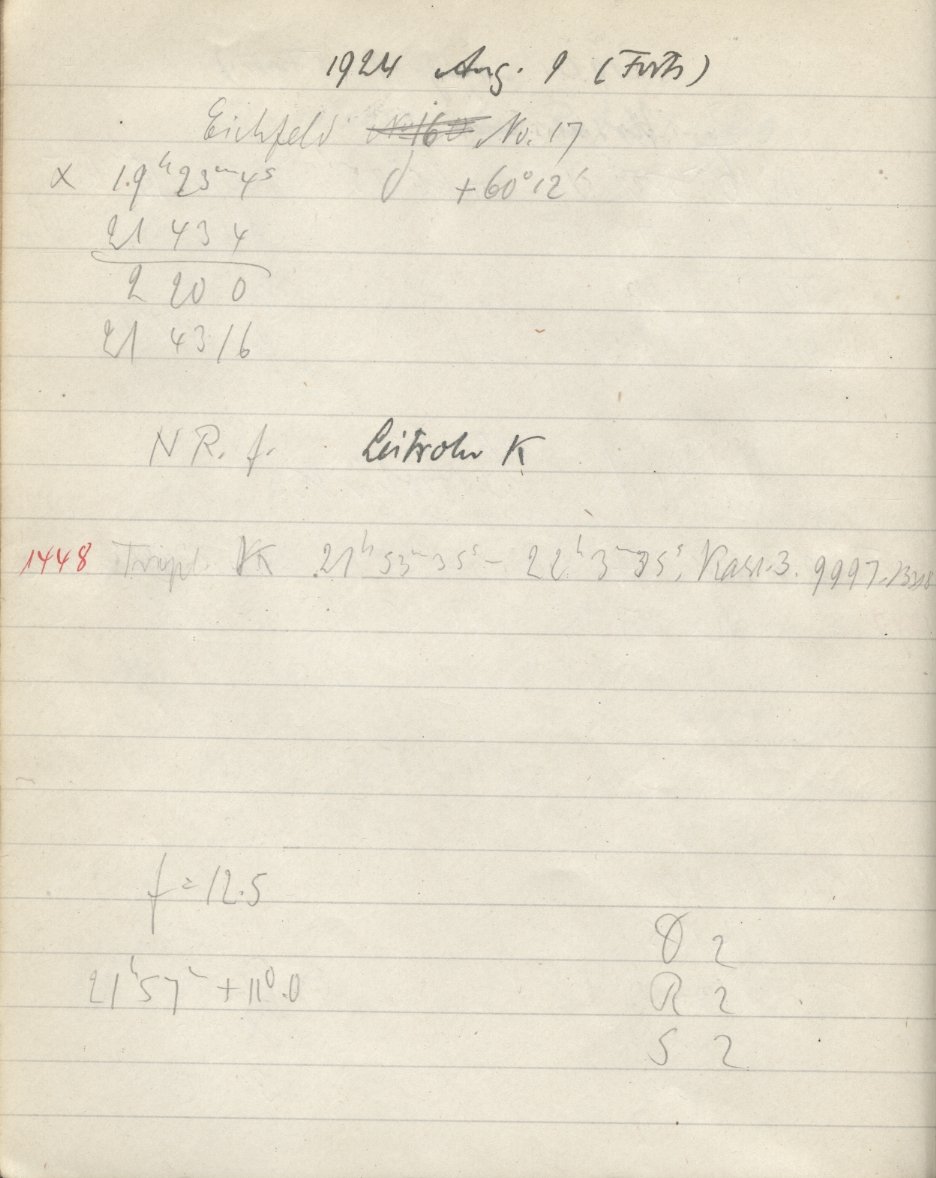 1924 Aug. 9 (Forts)
Eichfeld No 16 No. 17
α 19ʰ23ᵐ4ˢ δ +60°12'
21 43 4
2 20 0
21 43 16
N R. f. Leitrohr K
1448 Tripl. VK 21ʰ53ᵐ35ˢ – 22ʰ3ᵐ35ˢ, Kass. 3. 9997.
f = 12.5
D 2
21ʰ57ᵐ +11°.0 R 2
S 2